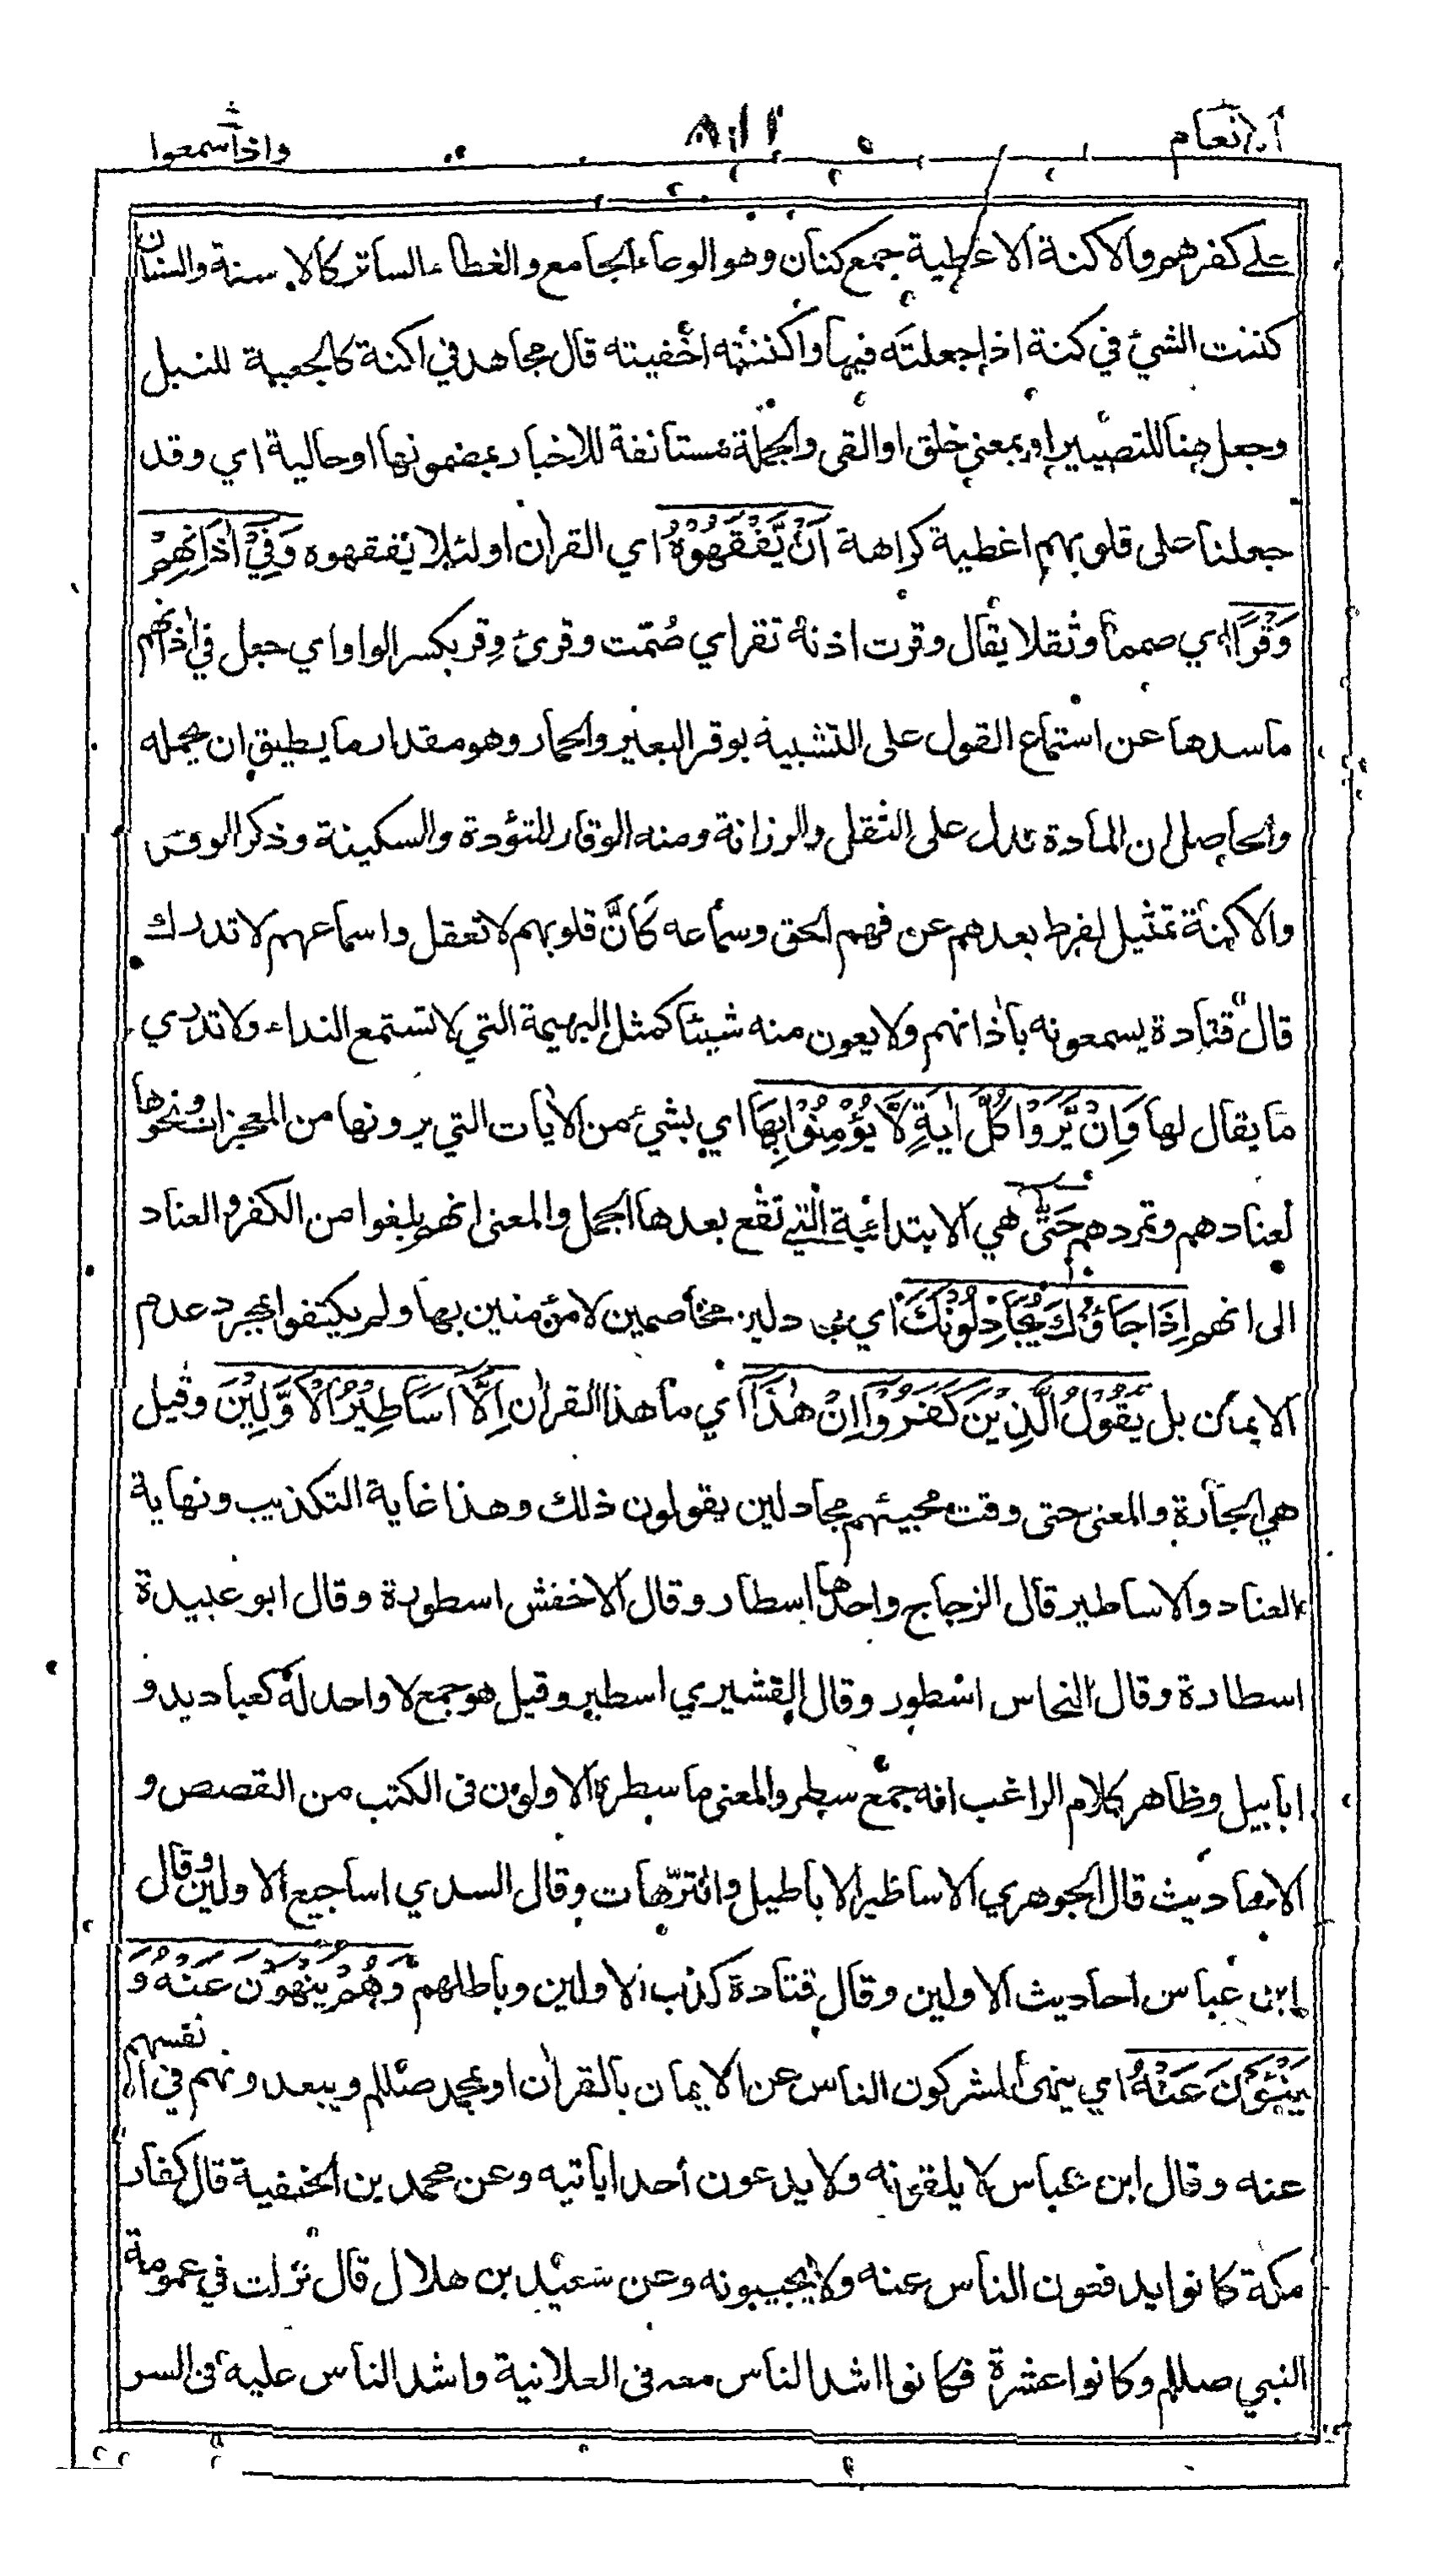 الانعام
واذا سمعوا
على كفرهم والاكنة الاغطية جمع كنان وهو الوعاء الجامع والغطاء الساتر كالاسنة والسنان
كننت الشيء في كنة اذا جعلته فيها واكننته اخفيته قال مجاهد في اكنة كالجعبة للنبل
وجعل هنا للتصيير او بمعنى خلق او القى والجملة مستأنفة للاخبار بمضمونها او حالية اي وقد
جعلنا على قلوبهم اغطية كراهة اَنْ يَّفْقَهُوْهُ اي القراٰن او لئلا يفقهوه وَفِيْٓ اٰذَانِهِمْ
وَقْرًا اي صمما وثقلا يقال وقرت اذنه تقر اي صُمّت وقرئ وِقر بكسر الواو اي جعل في اٰذانهم
ما سدها عن استماع القول على التشبيه بوقر البعير والحمار وهو مقدار ما يطيق ان يحمله
والحاصل ان المادة تدل على الثقل والرزانة ومنه الوقار للتؤدة والسكينة وذكر الوقر
والاكنة تمثيل لفرط بعدهم عن فهم الحق وسماعه كَاَنَّ قلوبهم لا تعقل واسماعهم لا تدرك
قال قتادة يسمعونه باٰذانهم ولا يعون منه شيئا كمثل البهيمة التي لا تستمع النداء ولا تدري
ما يقال لها وَاِنْ يَّرَوْا كُلَّ اٰيَةٍ لَّا يُؤْمِنُوْا بِهَا اي بشيء من الاٰيات التي يرونها من المعجزات ونحوها
لعنادهم وتمردهم حَتّٰى هي الابتدائية التي تقع بعدها الجمل والمعنى انهم بلغوا من الكفر والعناد
الى انهم اِذَا جَآؤُكَ يُجَادِلُوْنَكَ اي مجادلين مخاصمين لا مؤمنين بها ولم يكتفوا بمجرد عدم
الايمان بل يَقُوْلُ الَّذِيْنَ كَفَرُوْٓا اِنْ هٰذَآ اي ما هذا القراٰن اِلَّآ اَسَاطِيْرُ الْاَوَّلِيْنَ وقيل
هي الجارة والمعنى حتى وقت مجيئهم مجادلين يقولون ذلك وهذا غاية التكذيب ونهاية
العناد والاساطير قال الزجاج واحدها اسطار وقال الاخفش اسطورة وقال ابو عبيدة
اسطارة وقال النحاس اسطور وقال القشيري اسطير وقيل هو جمع لا واحد له كعباديد و
ابابيل وظاهر كلام الراغب انه جمع سطر والمعنى ما سطرة الاولون في الكتب من القصص و
الاحاديث قال الجوهري الاساطير الاباطيل والترّهات وقال السدي اساجيع الاولين وقال
ابن عباس احاديث الاولين وقال قتادة كذب الاولين وباطلهم وَهُمْ يَنْهَوْنَ عَنْهُ وَ
يَنْئَوْنَ عَنْهُ اي ينهى المشركون الناس عن الايمان بالقراٰن او بمحمد صللم ويبعدونهم في انفسهم
عنه وقال ابن عباس لا يلقونه ولا يدعون احدا ياتيه وعن محمد بن الحنفية قال كفار
مكة كانوا يدفعون الناس عنه ولا يجيبونه وعن سعيد بن هلال قال نزلت في عمومة
النبي صللم وكانوا عشرة فكانوا اشد الناس معه في العلانية واشد الناس عليه في السر